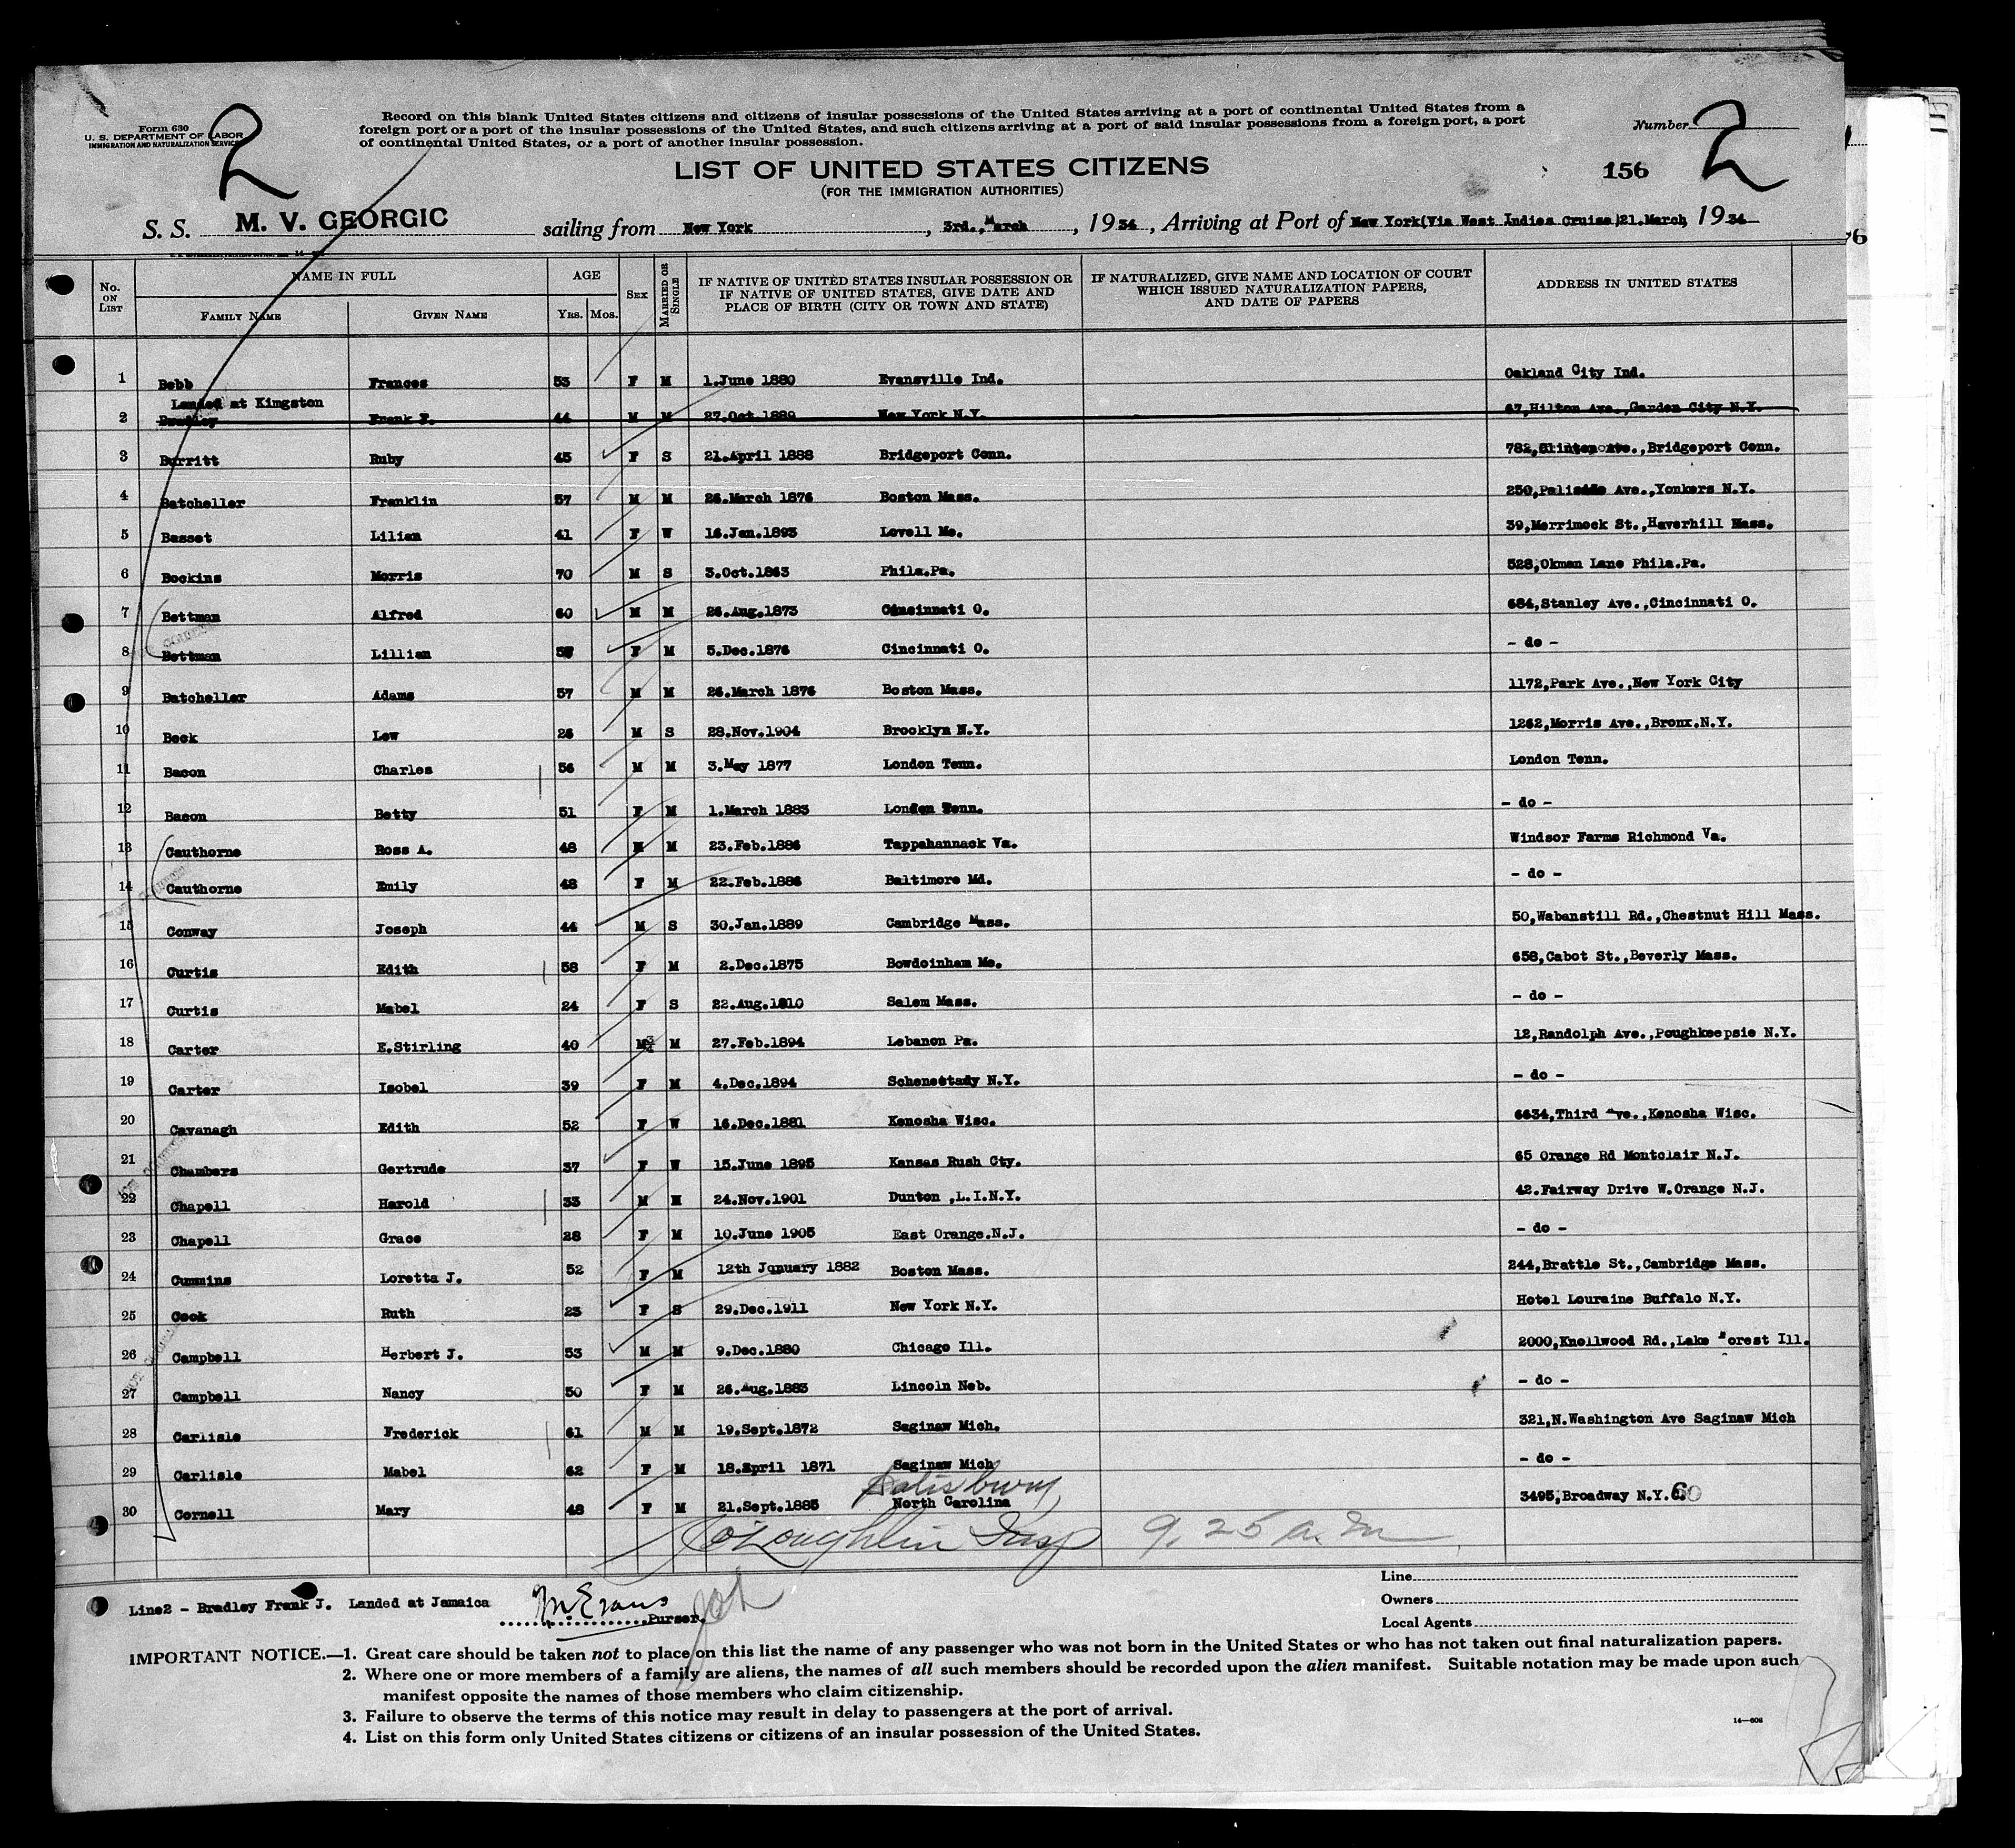 Form 630
U. S. DEPARTMENT OF LABOR
IMMIGRATION AND NATURALIZATION SERVICE
2
Record on this blank United States citizens and citizens of insular possessions of the United States arriving at a port of continental United States from a
foreign port or a port of the insular possessions of the United States, and such citizens arriving at a port of said insular possessions from a foreign port, a port
of continental United States, or a port of another insular possession.
Number 2
LIST OF UNITED STATES CITIZENS
156
(FOR THE IMMIGRATION AUTHORITIES)
S. S. M. V. GEORGIC sailing from New York, 3rd., March, 1934, Arriving at Port of New York(Via West Indies Cruise)21.March, 1934
No. ON LIST NAME IN FULL AGE SEX MARRIED OR SINGLE IF NATIVE OF UNITED STATES INSULAR POSSESSION OR IF NATIVE OF UNITED STATES, GIVE DATE AND PLACE OF BIRTH (CITY OR TOWN AND STATE) IF NATURALIZED, GIVE NAME AND LOCATION OF COURT WHICH ISSUED NATURALIZATION PAPERS, AND DATE OF PAPERS ADDRESS IN UNITED STATES
FAMILY NAME GIVEN NAME YRS. MOS.
1 Bebb Frances 53 F M 1.June 1880 Evansville Ind. Oakland City Ind.
Landed at Kingston
2 Bradley Frank F. 44 M M 27.Oct.1889 New York N.Y. 67,Hilton Ave.,Garden City N.Y.
3 Burritt Ruby 45 F S 21.April 1888 Bridgeport Conn. 782, Bridgeport Conn.
4 Batcheller Franklin 57 M M 26.March 1876 Boston Mass. 250,Palisade Ave.,Yonkers N.Y.
5 Basset Lilian 41 F W 16.Jan.1893 Lovell Me. 39,Merrimock St.,Haverhill Mass.
6 Bockins Morris 70 M S 3.Oct.1863 Phila.Pa. 528,Okman Lane Phila.Pa.
7 Bettman Alfred 60 M M 26.Aug.1873 Cincinnati O. 684,Stanley Ave.,Cincinnati O.
8 Bettman Lillian 57 F M 5.Dec.1876 Cincinnati O. - do -
9 Batcheller Adams 57 M M 26.March 1876 Boston Mass. 1172,Park Ave.,New York City
10 Beck Lew 26 M S 28.Nov.1904 Brooklyn N.Y. 1262,Morris Ave.,Bronx.N.Y.
11 Bacon Charles 56 M M 3.May 1877 London Tenn. London Tenn.
12 Bacon Betty 51 F M 1.March 1883 London Tenn. - do -
13 Cauthorne Ross A. 48 M M 23.Feb.1886 Tappahannack Va. Windsor Farms Richmond Va.
14 Cauthorne Emily 48 F M 22.Feb.1886 Baltimore Md. - do -
15 Conway Joseph 44 M S 30.Jan.1889 Cambridge Mass. 50,Wabanstill Rd.,Chestnut Hill Mass.
16 Curtis Edith 58 F M 2.Dec.1875 Bowdoinham Me. 658,Cabot St.,Beverly Mass.
17 Curtis Mabel 24 F S 22.Aug.1910 Salem Mass. - do -
18 Carter E.Stirling 40 M M 27.Feb.1894 Lebanon Pa. 12,Randolph Ave.,Poughkeepsie N.Y.
19 Carter Isobel 39 F M 4.Dec.1894 Schenettady N.Y. - do -
20 Cavanagh Edith 52 F W 16.Dec.1881 Kenosha Wisc. 6634,Third Ave.,Kenosha Wisc.
21 Chambers Gertrude 37 F W 15.June 1895 Kansas Rush Cty. 65 Orange Rd Montclair N.J.
22 Chapell Harold 33 M M 24.Nov.1901 Dunton ,L.I.N.Y. 42.Fairway Drive W.Orange N.J.
23 Chapell Grace 28 F M 10.June 1905 East Orange.N.J. - do -
24 Cummins Loretta J. 52 F M 12th January 1882 Boston Mass. 244,Brattle St.,Cambridge Mass.
25 Cook Ruth 23 F S 29.Dec.1911 New York N.Y. Hotel Louraine Buffalo N.Y.
26 Campbell Herbert J. 53 M M 9.Dec.1880 Chicago Ill. 2000,Knollwood Rd.,Lake Forest Ill.
27 Campbell Nancy 50 F M 26.Aug.1883 Lincoln Neb. - do -
28 Carlisle Frederick 61 M M 19.Sept.1872 Saginaw Mich. 321,N.Washington Ave Saginaw Mich
29 Carlisle Mabel 62 F M 18.April 1871 Saginaw Mich - do -
Salisbury
30 Cornell Mary 48 F M 21.Sept.1885 North Carolina 3495,Broadway N.Y.
O'Loughlin Insp 9.25 a.m
Line
Line2 - Bradley Frank J. Landed at Jamaica M Evans Purser.
Owners
Local Agents
IMPORTANT NOTICE.—1. Great care should be taken not to place on this list the name of any passenger who was not born in the United States or who has not taken out final naturalization papers.
2. Where one or more members of a family are aliens, the names of all such members should be recorded upon the alien manifest. Suitable notation may be made upon such
manifest opposite the names of those members who claim citizenship.
3. Failure to observe the terms of this notice may result in delay to passengers at the port of arrival.
4. List on this form only United States citizens or citizens of an insular possession of the United States.
14—608